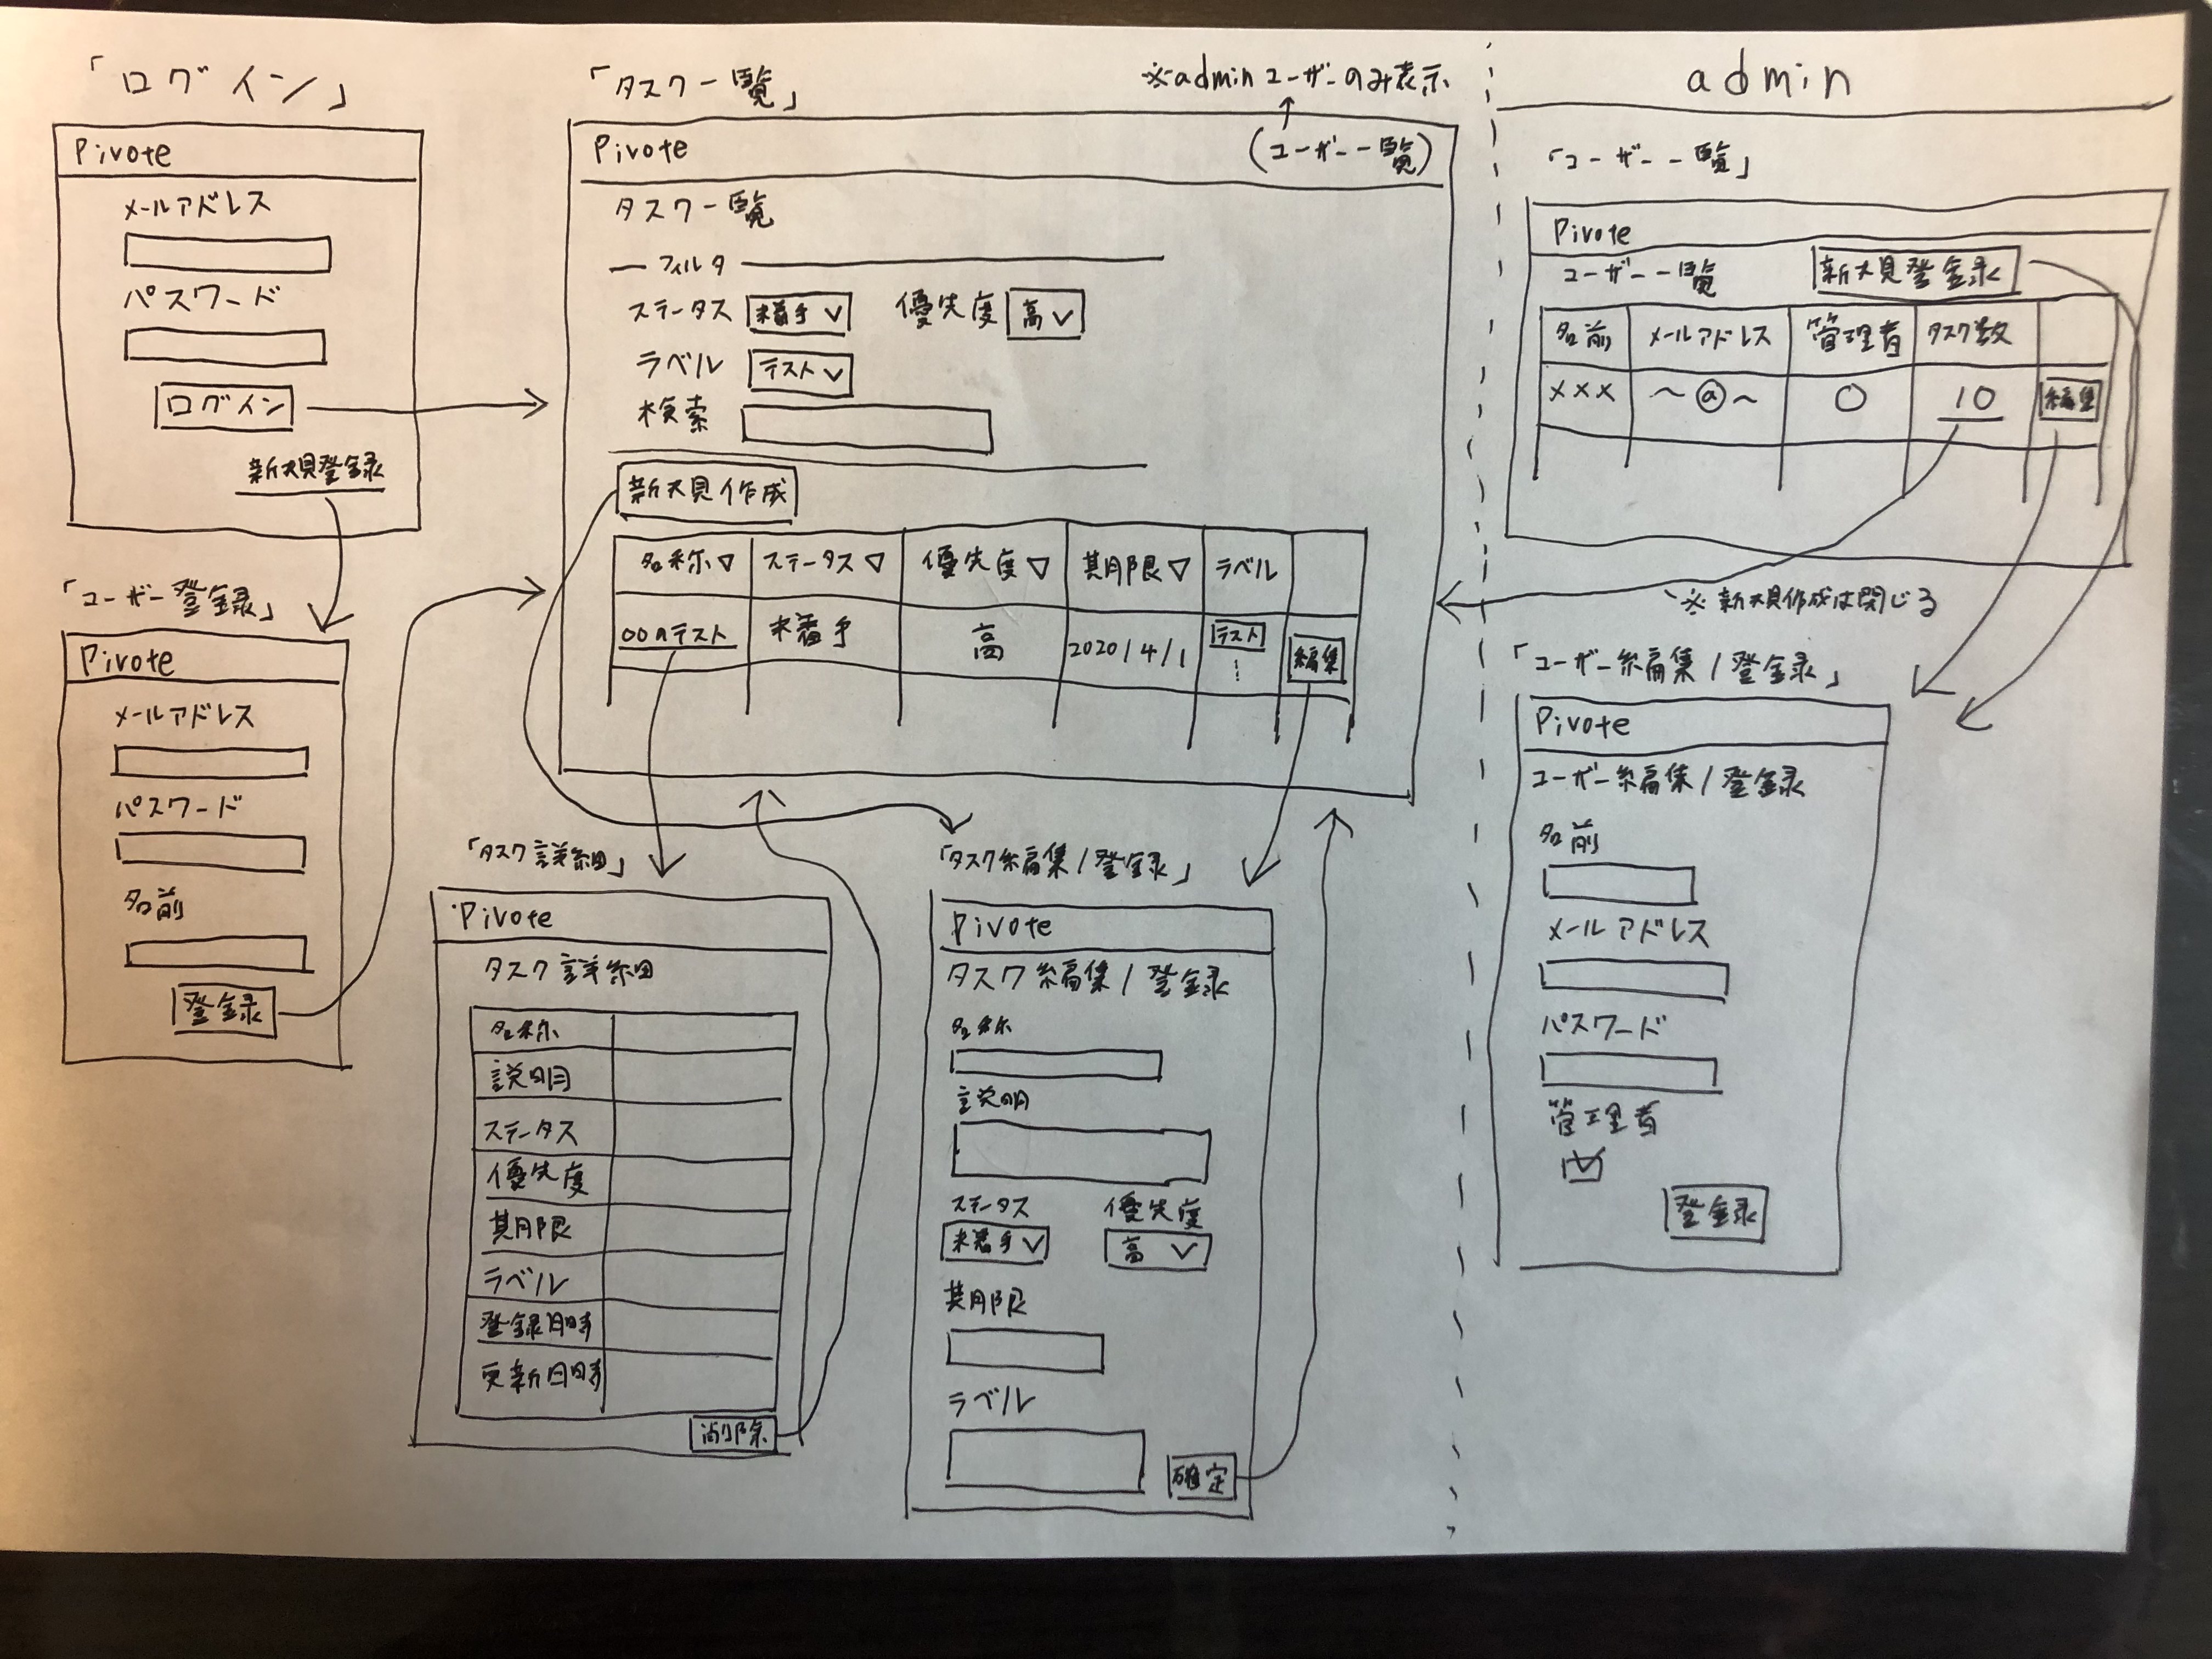 「ログイン」
Pivote
メールアドレス
パスワード
ログイン
新規登録
「ユーザー登録」
Pivote
メールアドレス
パスワード
名前
登録
「タスク一覧」
※adminユーザーのみ表示
Pivote (ユーザー一覧)
タスク一覧
フィルタ
ステータス 未着手 優先度 高
ラベル テスト
検索
新規作成
名称▽ ステータス▽ 優先度▽ 期限▽ ラベル
○○のテスト 未着手 高 2020/4/1 テスト 編集
「タスク詳細」
Pivote
タスク詳細
名称
説明
ステータス
優先度
期限
ラベル
登録日時
更新日時
削除
「タスク編集/登録」
Pivote
タスク編集/登録
名称
説明
ステータス 優先度
未着手 高
期限
ラベル
確定
admin
「ユーザー一覧」
Pivote
ユーザー一覧 新規登録
名前 メールアドレス 管理者 タスク数
××× 〜@〜 ○ 10 編集
※新規作成は閉じる
「ユーザー編集/登録」
Pivote
ユーザー編集/登録
名前
メールアドレス
パスワード
管理者
登録